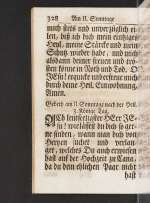 328 Am II. Sonntage
mich stets und unverzüglich ei-
len, biß ich dich mein einiges
Heyl, meine Stärcke und mein
Schutz wieder habe, und mich
allein deiner freuen und trö-
sten könne in Noth und Tod. O
JEsu! erquicke und erfreue mich
durch deine Heil. Einwohnung,
Amen.
Gebeth am II. Sonntag nach der Heil.
3. Könige Tag.
O Leutseligster HErr JE-
su! weil du dich so ger-
ne finden, wann man dich von
Hertzen suchet und verlan-
get, welches Du auch erwiesen
hast auf der Hochzeit zu Cana,
da du dem ehelichen Paar nicht
hast